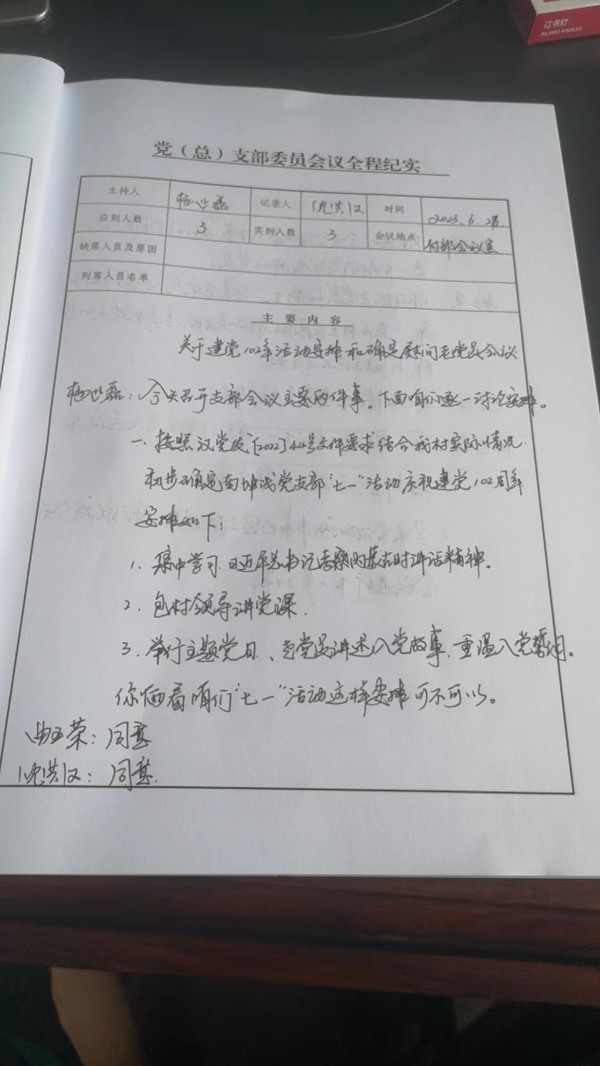 订书钉
党（总）支部委员会议全程纪实
主持人 杨世磊 记录人 倪洪汉 时间 2023.6.28
应到人数 3 实到人数 3 会议地点 村部会议室
缺席人员及原因
列席人员名单
主要内容
关于建党102年活动安排和确定慰问老党员会议
杨世磊：今天召开支部会议主要两件事。下面咱们逐一讨论安排。
一、按照汉党发 44号文件要求结合我村实际情况
初步确定 党支部"七一"活动庆祝建党102周年
安排如下：
1、集中学习习近平总书记考察内蒙古时讲话精神。
2、包村领导讲党课.
3、举行主题党日、老党员讲述入党故事、重温入党誓词。
你俩看咱们"七一"活动这样安排可不可以。
荣：同意
倪洪汉：同意.